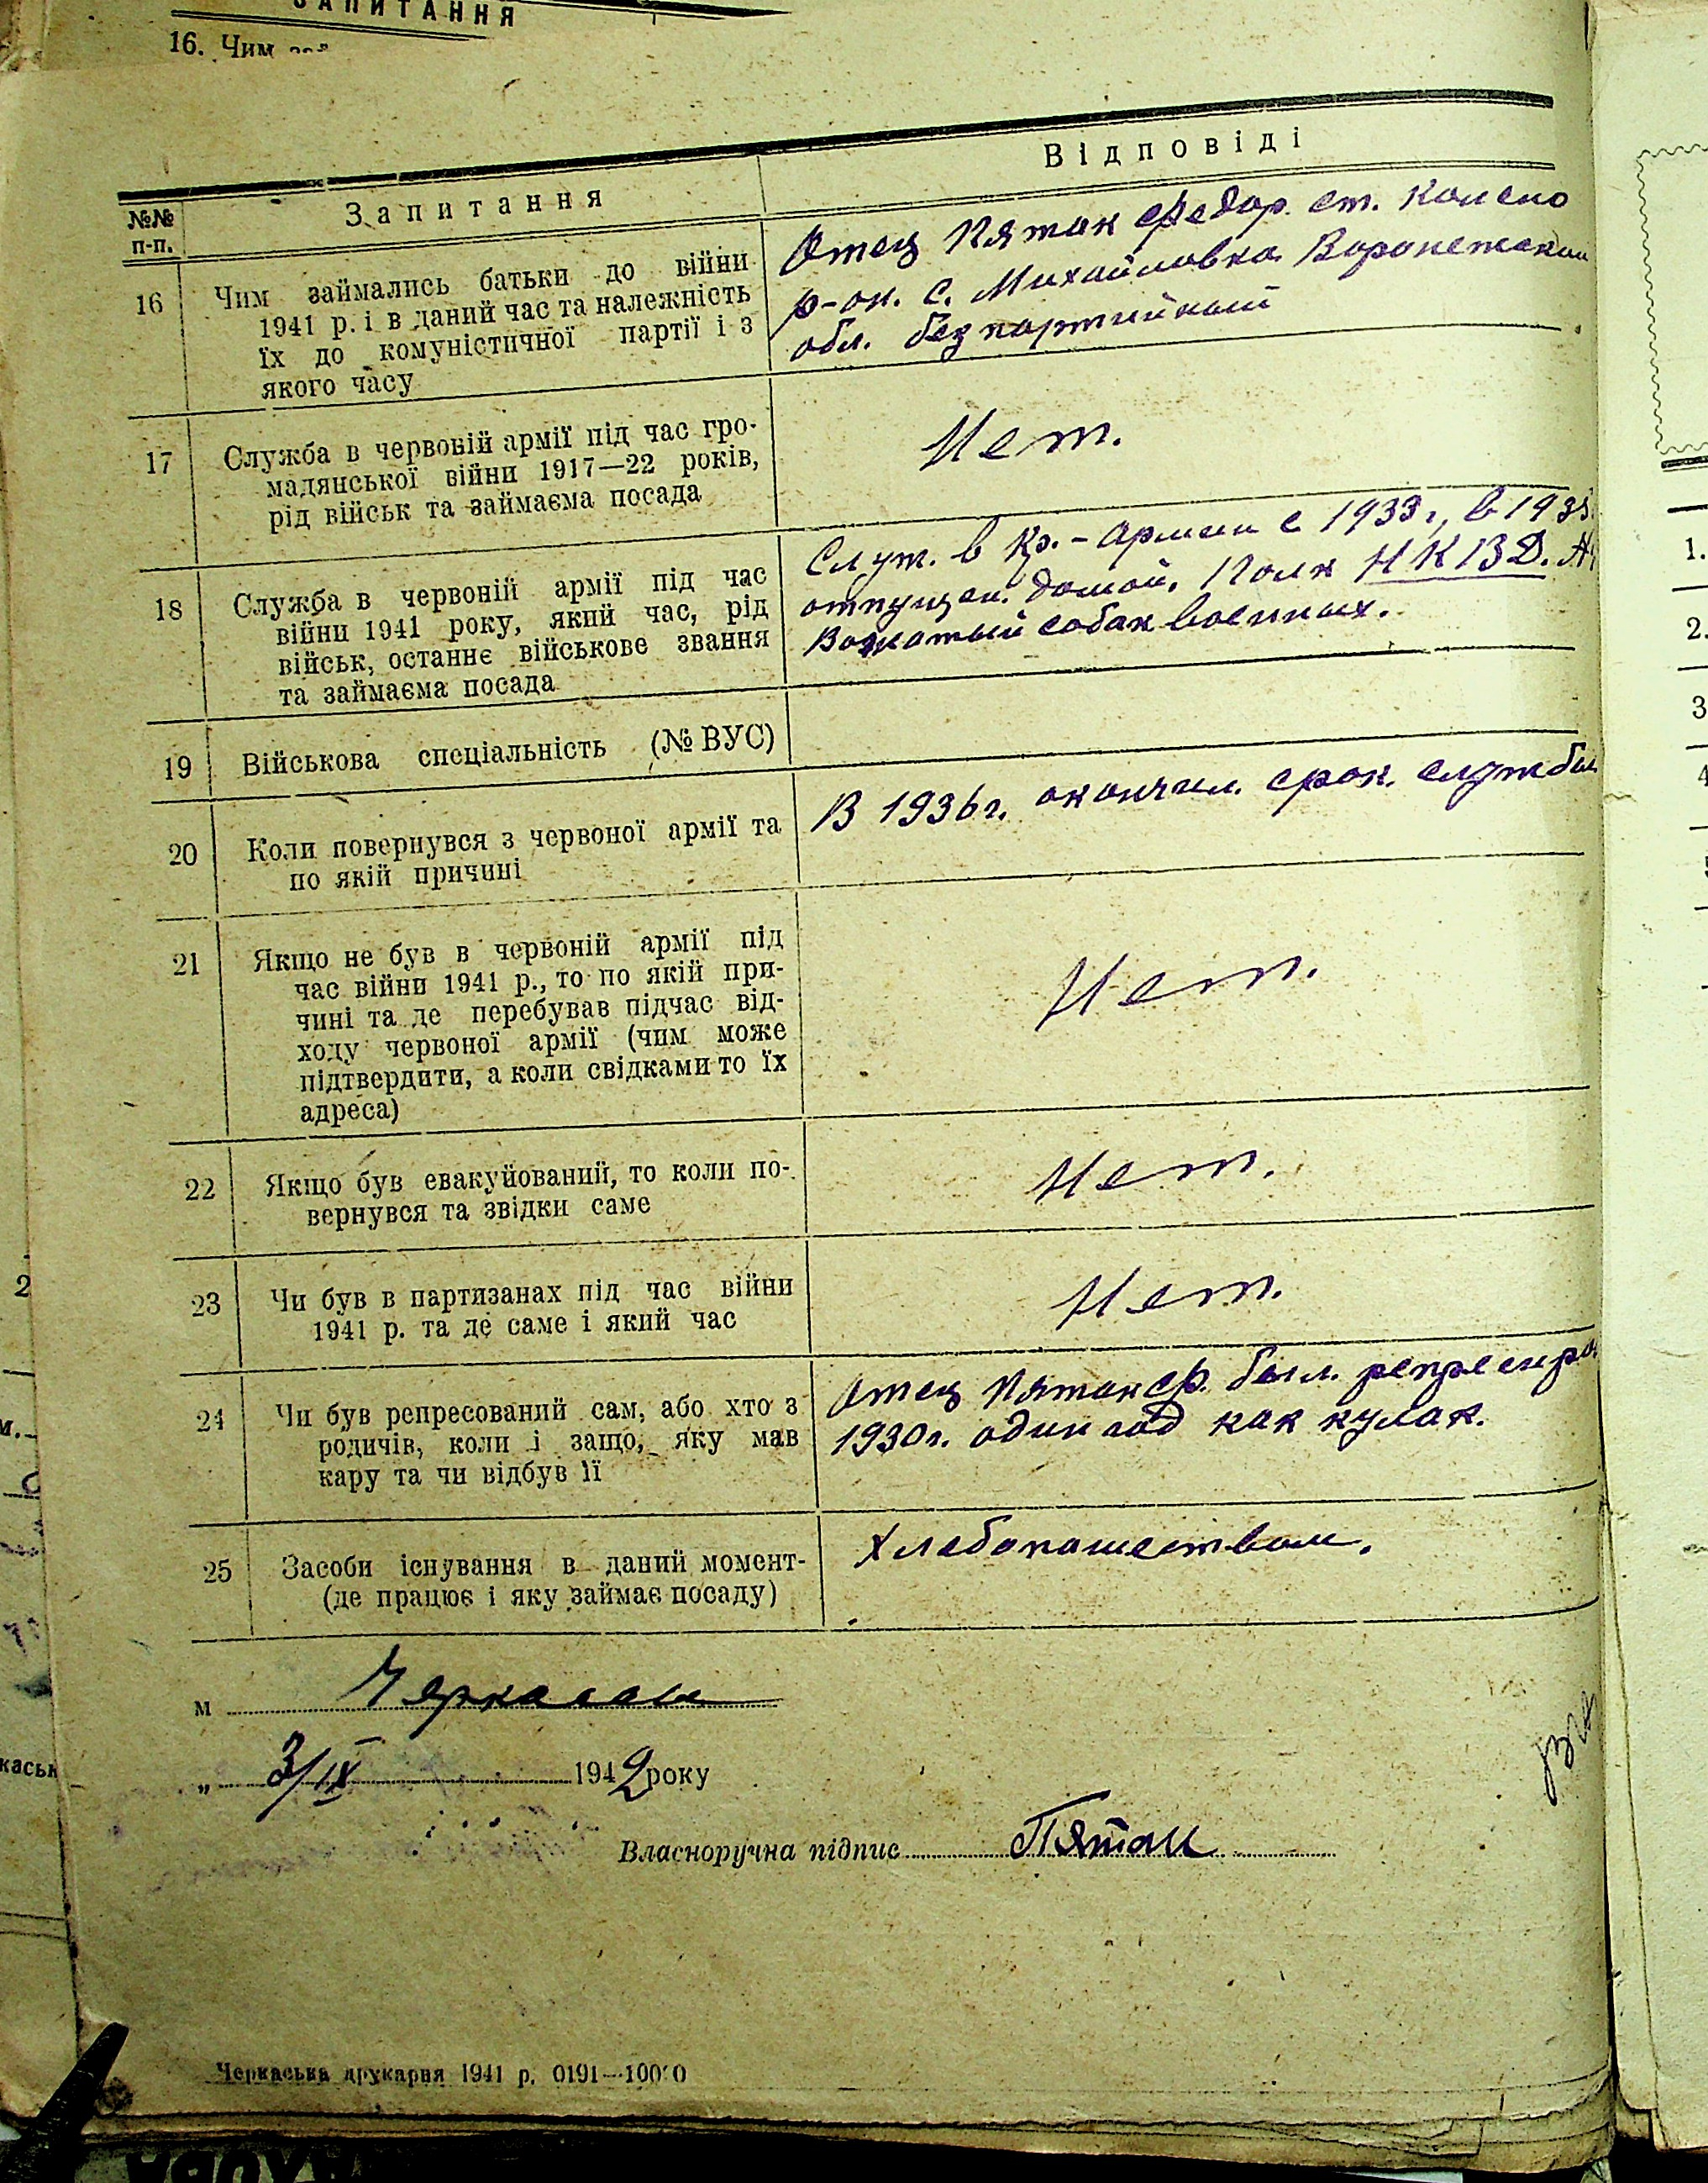 ЗАПИТАННЯ
16. Чим
№№ п-п.
Запитання
Відповіді
16
Чим займались батьки до війни
1941 р. і в даний час та належність
їх до комуністичної партії і з
якого часу
Отец Пятак Федор. ст. Колено
р-он. с. Михайловка Воронежской
обл. безпартийный
17
Служба в червоній армії під час гро-
мадянської війни 1917—22 років,
рід військ та займаєма посада
Нет.
18
Служба в червоній армії під час
війни 1941 року, який час, рід
військ, останнє військове звання
та займаєма посада
Служ. в Кр.-Армии с 1933г., в 193
отпущен. домой. Полк НКВД.
Вожатый собак военных.
19
Військова спеціальність (№ ВУС)
20
Коли повернувся з червоної армії та
по якій причині
В 1936г. окончил. срок. службы
21
Якщо не був в червоній армії під
час війни 1941 р., то по якій при-
чині та де перебував підчас від-
ходу червоної армії (чим може
підтвердити, а коли свідками то їх
адреса)
Нет.
22
Якщо був евакуйований, то коли по-
вернувся та звідки саме
Нет.
23
Чи був в партизанах під час війни
1941 р. та де саме і який час
Нет.
24
Чи був репресований сам, або хто з
родичів, коли і защо, яку мав
кару та чи відбув її
Отец Пятак Ф. был. репресиро
1930г. один год как кулак.
25
Засоби існування в даний момент-
(де працює і яку займає посаду)
Хлебопашеством.
м Черкассы
„ 3/IX 1942 року
Власноручна підпис Пятак
Черкаська друкарня 1941 р. 0191—10000